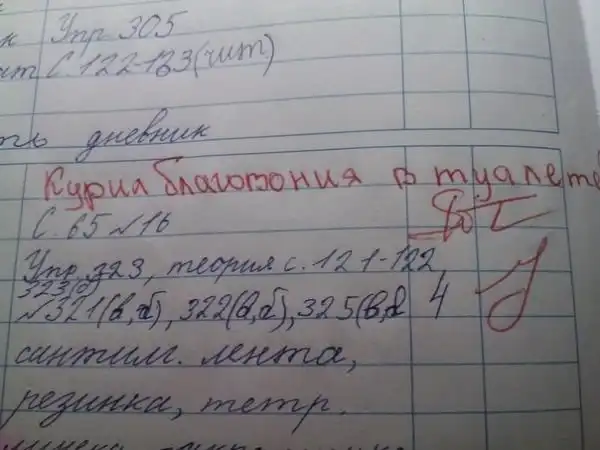 Упр 305
С. 122-123(чит)
дневник
Курил благовония в туалете
С. 65 №16
Упр 323, теория с. 121-122,
323(б)
№321(в,г), 322(в,г), 325(в, 4
сантим. лента,
резинка, тетр.